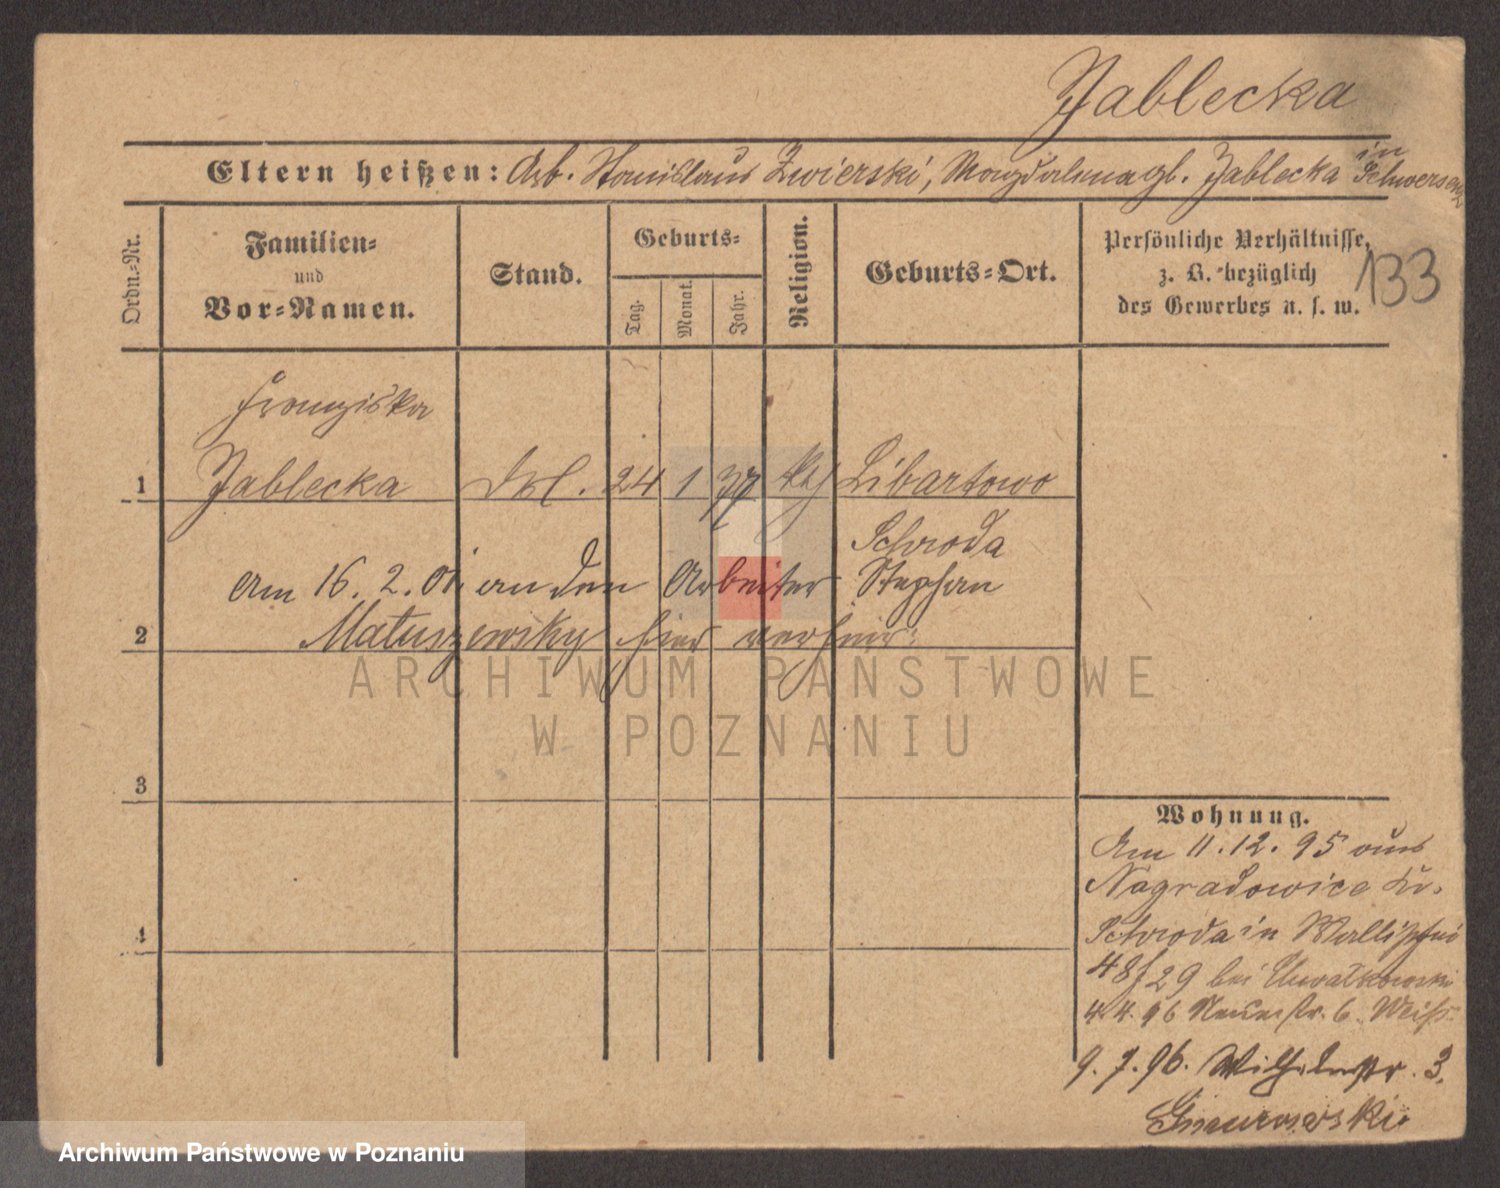 Jablecka
Eltern heißen: Arb. Stanislaus Zwierski, Magdalena gb. Jablecka in Schwersenz
Ordn.-Nr.
Familien-
und
Vor-Namen.
Stand.
Geburts-
Tag.
Monat.
Jahr.
Religion.
Geburts-Ort.
Persönliche Verhältnisse,
z. B. bezüglich
des Gewerbes u. s. w.
133
Franziska
1 Jablecka 24 1 77 kth Libartowo
Schroda
am 16. 2. 01. an den Arbeiter Stephan
2 Matuszewsky hier verheir:
ARCHIWUM PAŃSTWOWE
W POZNANIU
3
4
Wohnung.
Am 11. 12. 95 aus
Nagradowice Kr.
Schroda in Wallischei
48/29 bei
4. 4. 96 str. 6. Weiß
9. 7. 96. Wilhelmstr. 3.
Archiwum Państwowe w Poznaniu